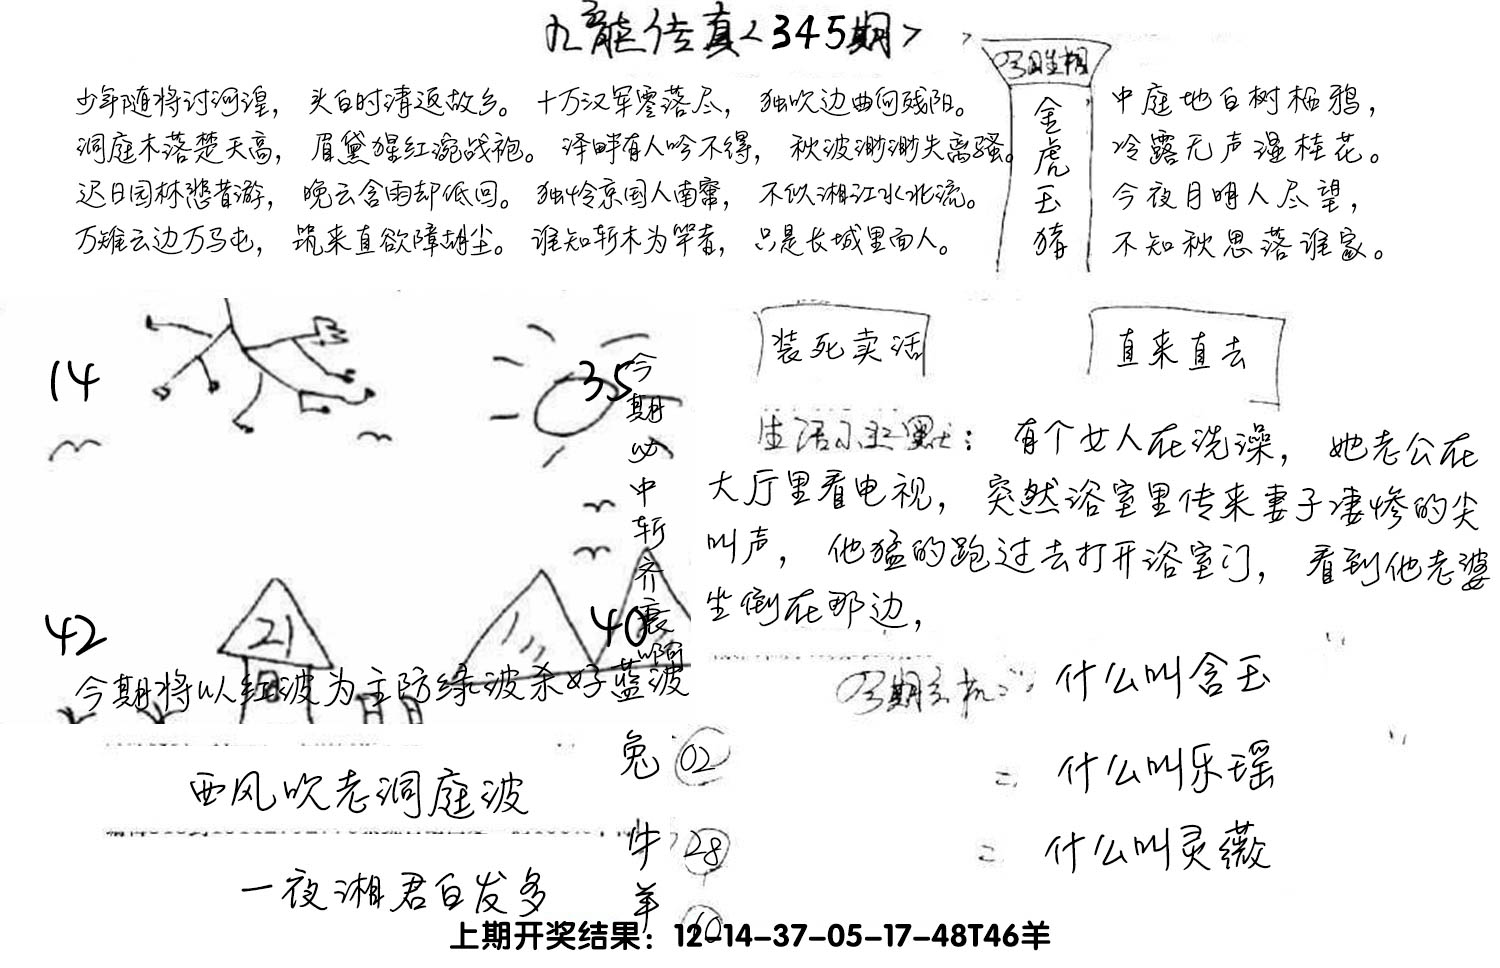 九龙传真<345期>
少年随将讨河湟，头白时清返故乡。十万汉军零落尽，独吹边曲向残阳。
洞庭木落楚天高，眉黛猩红涴战袍。泽畔有人吟不得，秋波渺渺失离骚。
迟日园林悲昔游，晚云含雨却低回。独怜京国人南窜，不似湘江水北流。
万雉云边万马屯，筑来直欲障胡尘。谁知斩木为竿者，只是长城里面人。
金虎玉猪
中庭地白树栖鸦，
冷露无声湿桂花。
今夜月明人尽望，
不知秋思落谁家。
14
35
今期必中斩齐衰啊
42
21
40
今期将以红波为主防绿波杀好蓝波
装死卖活
直来直去
生活小幽默：有个女人在洗澡，她老公在
大厅里看电视，突然浴室里传来妻子凄惨的尖
叫声，他猛的跑过去打开浴室门，看到他老婆
坐倒在那边，
今期玄机：什么叫含玉
二 什么叫乐瑶
二 什么叫灵薇
西风吹老洞庭波
一夜湘君白发多
兔 02
牛 28
羊 10
上期开奖结果：12-14-37-05-17-48T46羊